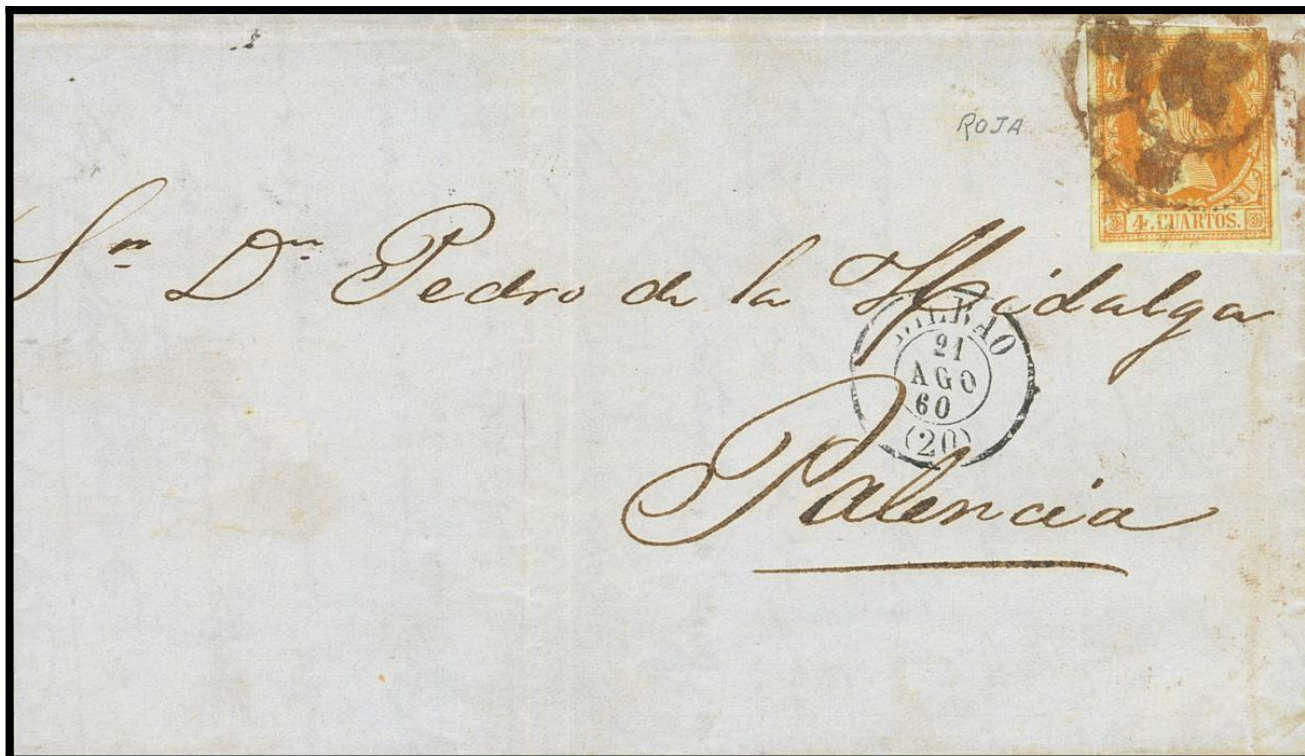 ROJA
4. CUARTOS.
Sn Dn Pedro de la Hidalga
BILBAO
21
AGO
60
(20)
Palencia